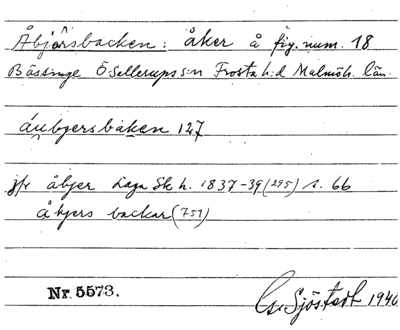 Åbjärsbacken: åker å fig. num. 18
Bössinge Ö. Sallerups s:n Frosta h:d Malmöh. län.
áubyersbakən 127
jfr åbjer Laga Sk. h. 1837-39 (295) s. 66
åbjers backar (751)
Nr. 5573.
Sjöstedt 1940